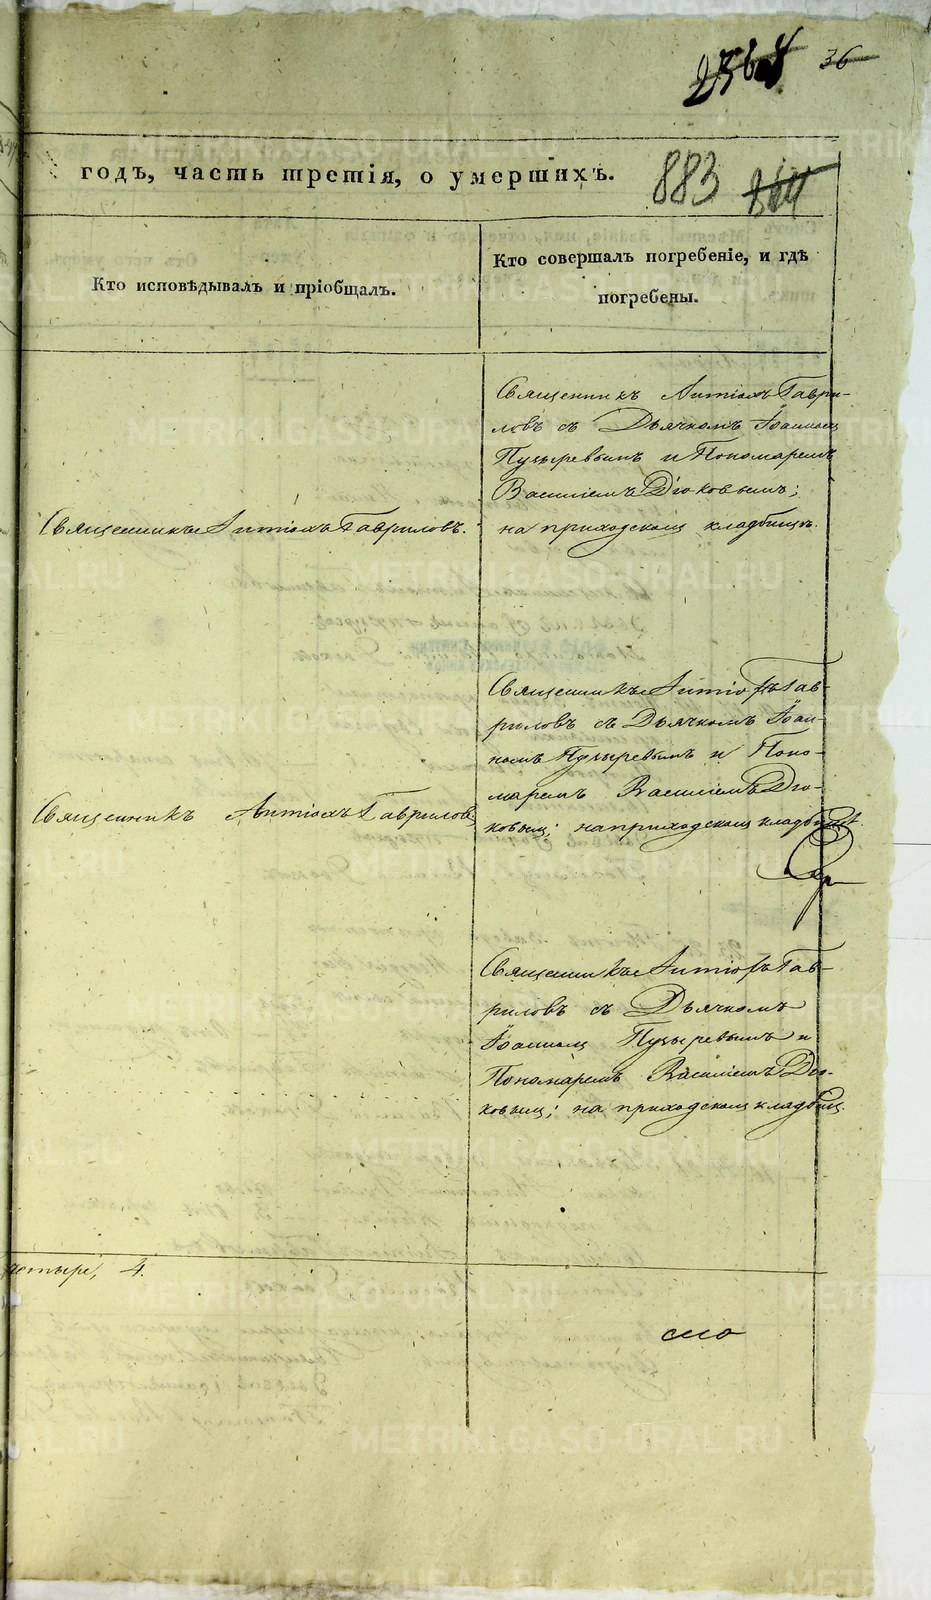 36
годъ, часть третія, о умершихъ.
883
Кто исповѣдывалъ и пріобщалъ.
Кто совершалъ погребеніе, и гдѣ
погребены.
Священникъ Антіохъ Гаври-
ловъ съ Дьячкомъ Іоанномъ
Пузыревымъ и Пономаремъ
Василіемъ Дюковымъ;
на приходскомъ кладбищѣ.
Священникъ Антіохъ Гавриловъ.
Священникъ Антіохъ Гав-
риловъ съ Дьячкомъ Іоан-
номъ Пузыревымъ и Поно-
маремъ Василіемъ Дю-
ковымъ; на приходскомъ кладбищѣ.
Священникъ Антіохъ Гавриловъ
Священникъ Антіохъ Гав-
риловъ съ Дьячкомъ
Іоанномъ Пузыревымъ и
Пономаремъ Василіемъ Дю-
ковымъ; на приходскомъ кладбищѣ.
четыре, 4.
METRIKI.GASO-URAL.RU